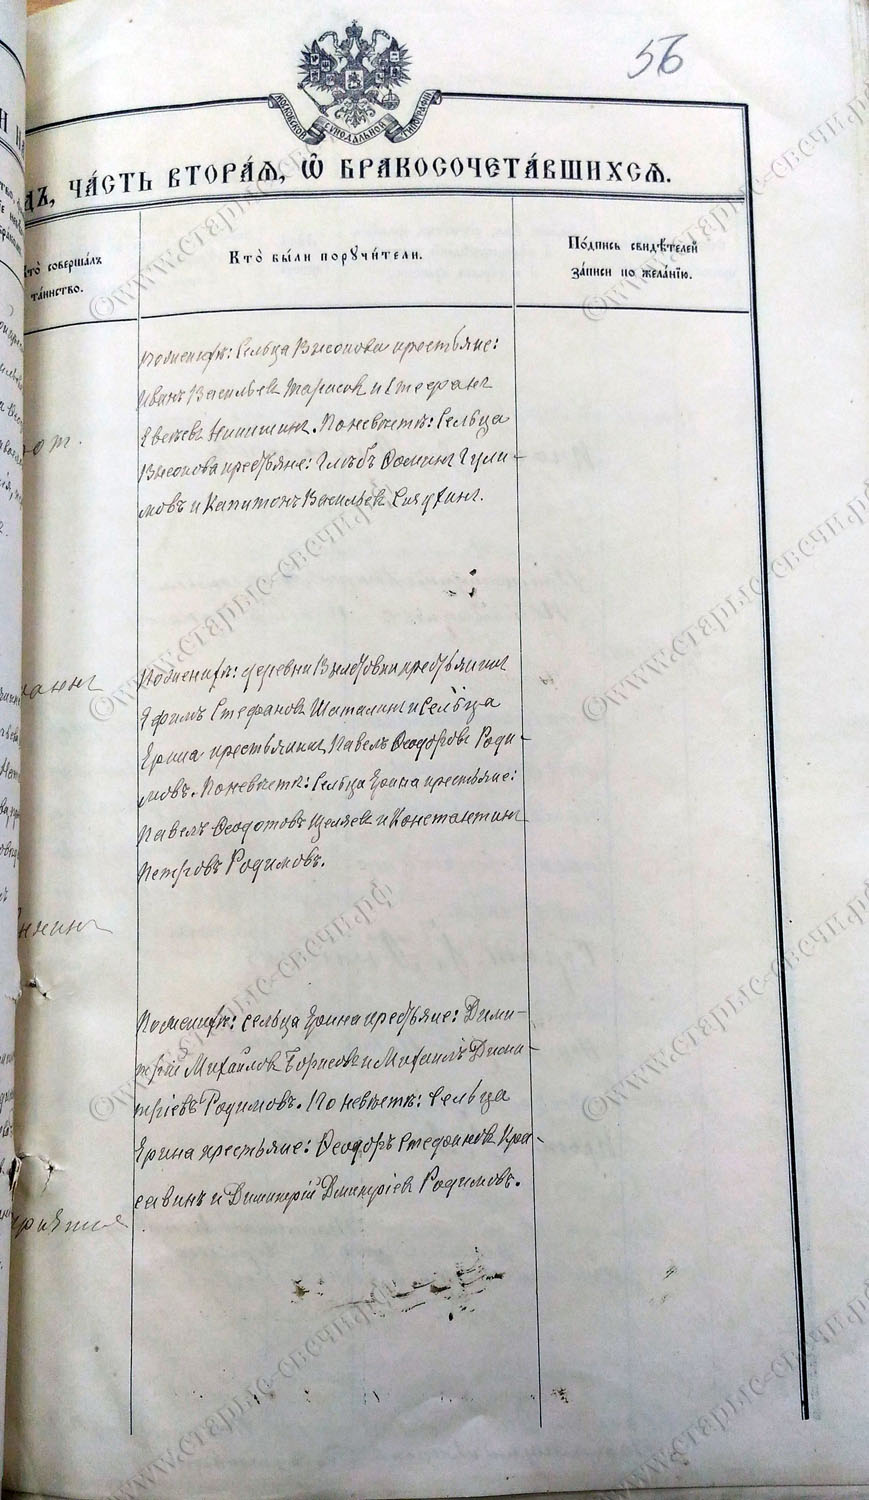 56
МОСКОВСКОЙ СѴНОДАЛЬНОЙ ТИПОГРАФІИ
ДЪ, ЧА́СТЬ ВТОРА́Я, Ѡ҆ БРАКОСОЧЕТА́ВШИХСЯ.
Кто̀ соверша́лъ
та́инство.
Кто̀ бы́ли порꙋчи́тели.
По́дпись свидѣ́телей
за́писи по жела́нїю.
По женихѣ: Сельца крестьяне:
Иванъ Васильевъ и Стефанъ
По невѣстѣ: Сельца
крестьяне: Глѣбъ Ѳоминъ Гули-
мовъ и Капитонъ Васильевъ
По женихѣ: деревни крестьянинъ
Ефимъ Стефановъ Шаталинъ и сельца
Ерина крестьянинъ Павелъ Ѳеодоровъ Роди-
мовъ. По невѣстѣ: Сельца Ерина крестьяне:
Павелъ Ѳеодотовъ и Константинъ
Петровъ Родимовъ.
По женихѣ: сельца Ерина крестьяне: Дими-
трій Михайловъ Борисовъ и Михаилъ Дими-
тріевъ Родимовъ. По невѣстѣ: Сельца
Ерина крестьяне: Ѳеодоръ Стефановъ Кра-
савинъ и Димитрій Дмитріевъ Родимовъ.
©www.старыс-свсчи.рф